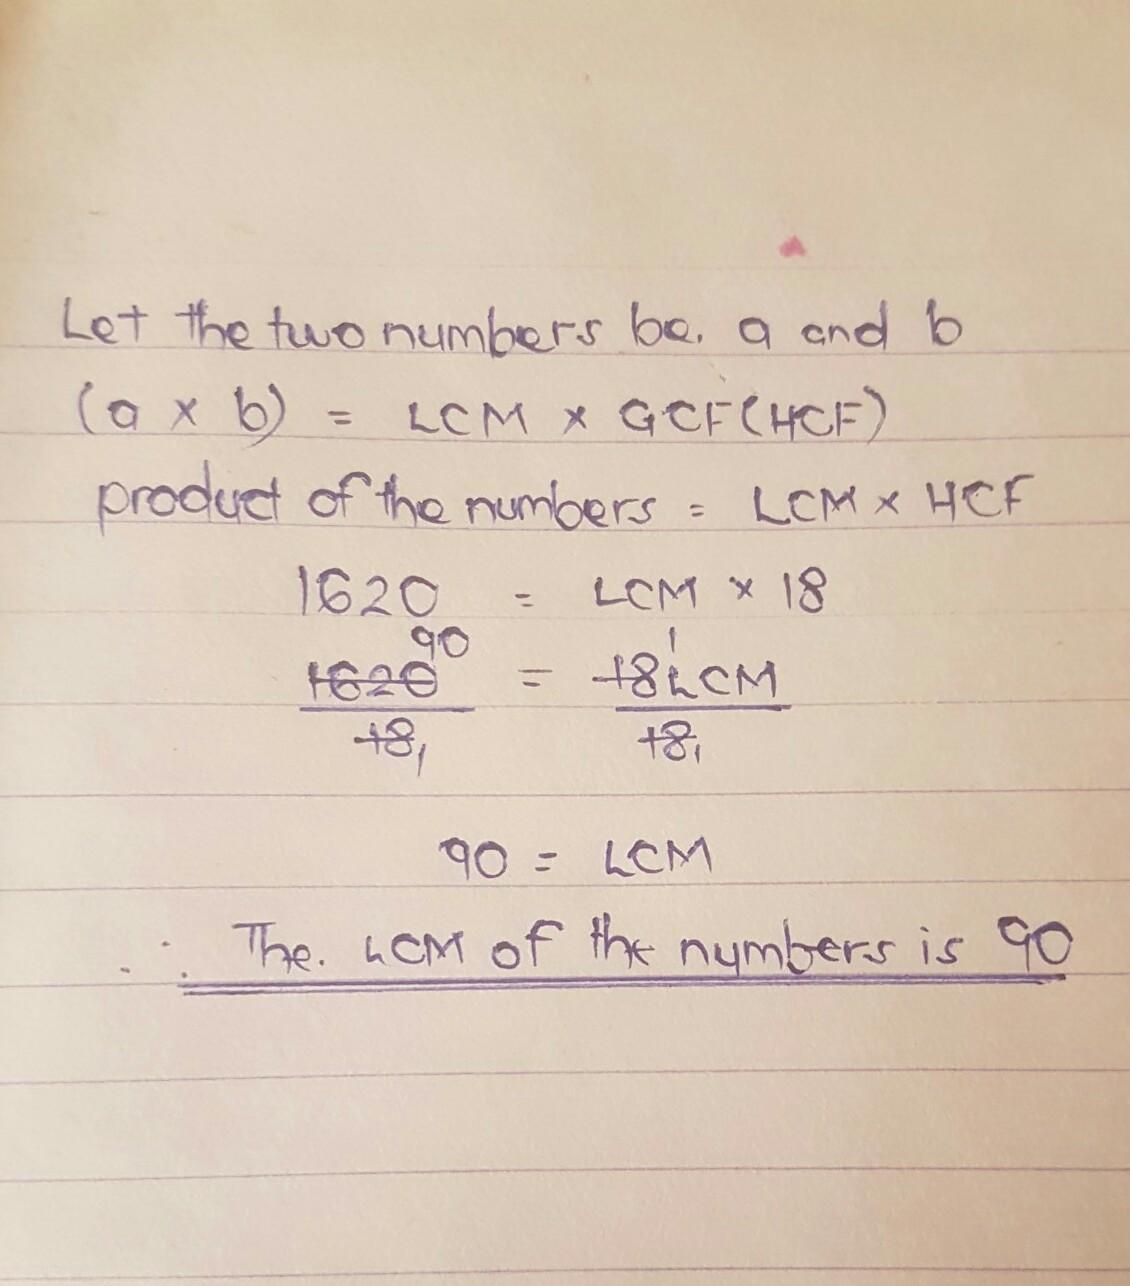 Let the two numbers be. a and b
(a x b) = LCM x GCF(HCF)
product of the numbers = LCM x HCF
1620 = LCM x 18
90 1
1620 = 18LCM
18 1 18 1
90 = LCM
∴ The. LCM of the numbers is 90